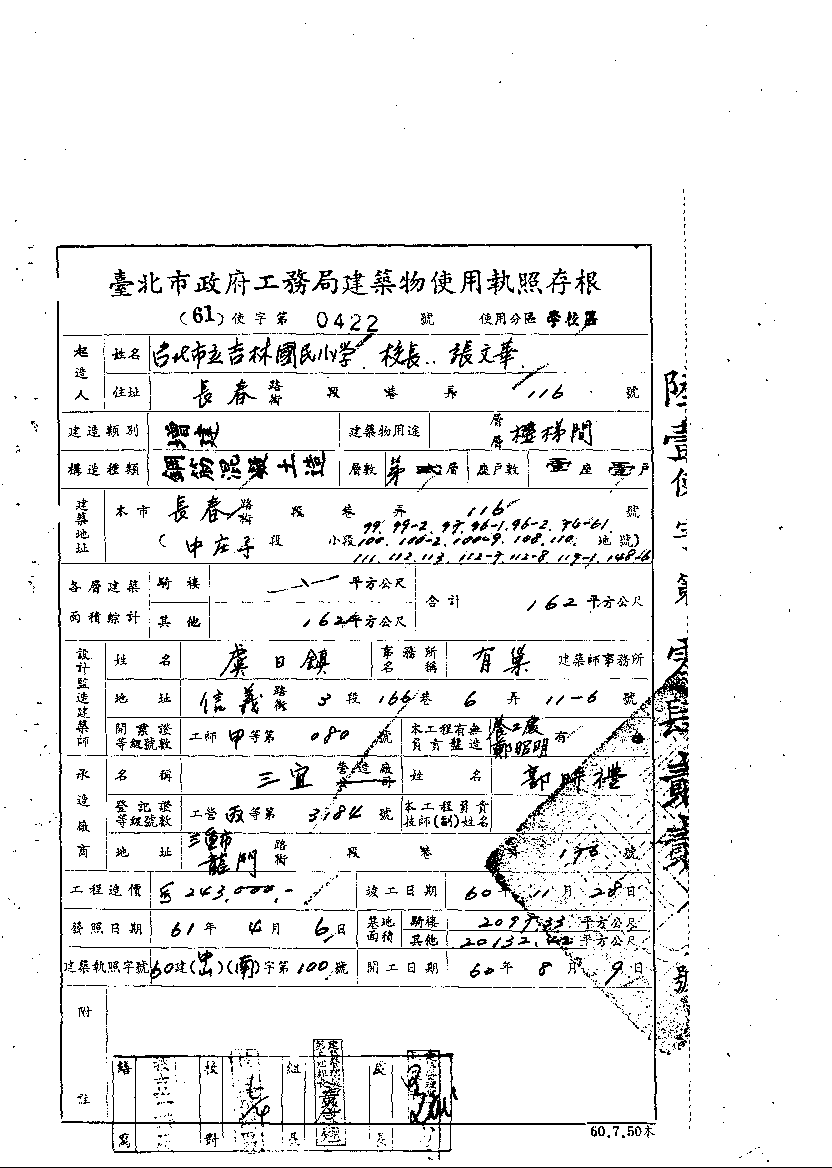 臺北市政府工務局建築物使用執照存根
(61)使字第 0422 號 使用分區 學校區
起造人 姓名 台北市立吉林國民小学 校長 張文華
住址 長春 路街 段 巷 弄 116 號
建造類別 增建 建築物用途 層層 樓梯間
構造種類 鋼筋混凝土造 層數 第 層 座戶數 壹座 壹戶
建築地址 本市 長春 路街 段 巷 弄 116 號
99. 99-2. 96-1. 96-2.
(中庄子 段 小段 100. 100-2. 108. 110. 地號)
111. 112. 113. 112-8. 119-1.
各層建築面積綜計 騎樓 平方公尺 合計 162 平方公尺
其他 162 平方公尺
設計監造建築師 姓名 虞日鎮 事務所名稱 有巢 建築師事務所
地址 信義 路街 3 段 166 巷 6 弄 11-6 號
開業證等級號數 工師 甲 等第 080 號 本工程有無負責監造 有
承造廠商 名稱 三宜 營造廠 姓名 郭
登記證等級號數 工營 丙 等第 3184 號 本工程負責技師(副)姓名
地址 三重市 龍門 路街 段 巷 176 號
工程造價 243,000.- 竣工日期 60年 11月 28日
發照日期 61年 4月 6日 基地面積 騎樓 2097.33 平方公尺
其他 20132.42 平方公尺
建築執照字號 60建( )(南)字第 100 號 開工日期 60年 8月 9日
附註
繕寫 校對 組長 處長
60.7.50本
陸壹使字第零肆貳貳號